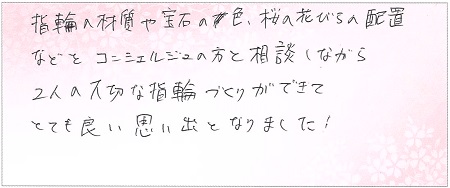 指輪の材質や宝石の色、桜の花びらの配置
などをコンシェルジュの方と相談しながら
2人の大切な指輪づくりができて
とても良い思い出となりました！